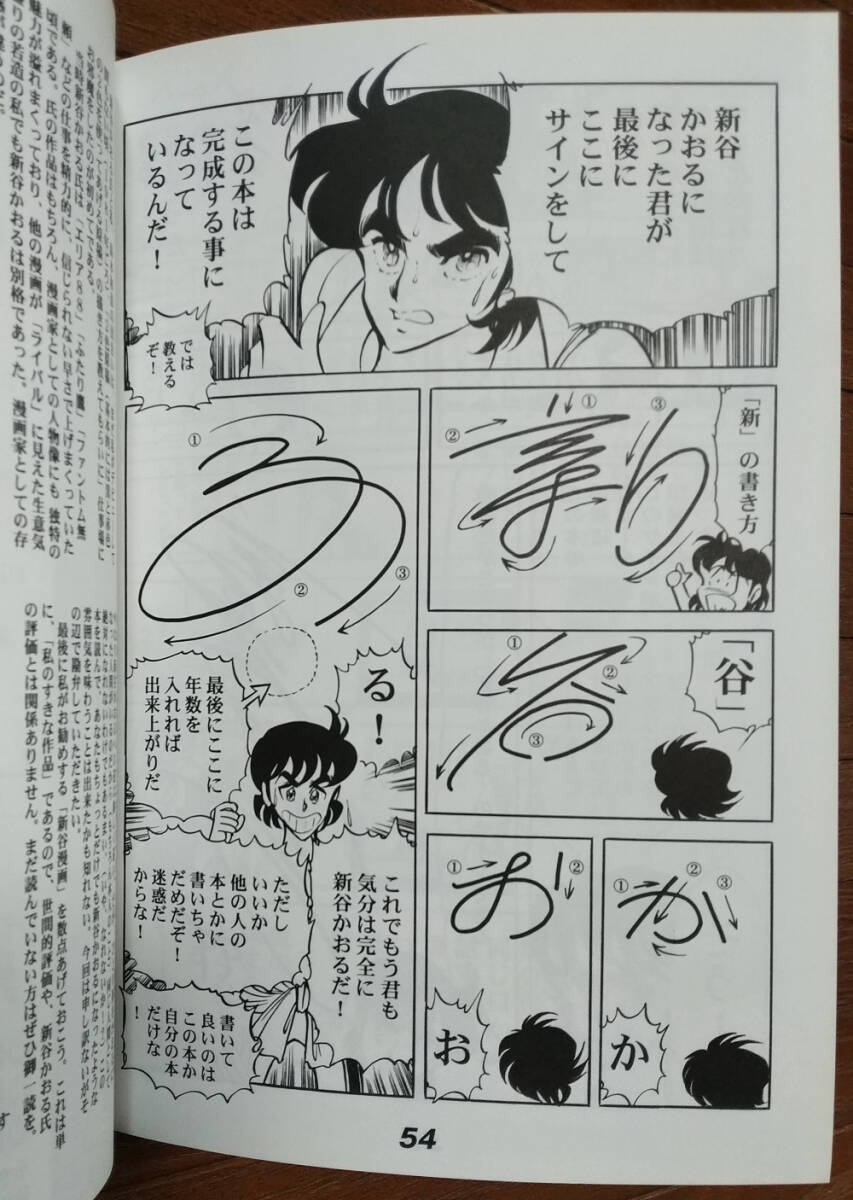 新谷
かおるに
なった君が
最後に
ここに
サインをして
この本は
完成する事に
なって
いるんだ！
では
教える
ぞ！
「新」の書き方
①
②
③
「谷」
①
②
③
か
①
②
③
お
①
②
る！
①
②
③
最後にここに
年数を
入れれば
出来上がりだ
これでもう君も
気分は完全に
新谷かおるだ！
ただし
いいか
他の人の
本とかに
書いちゃ
だめだぞ！
迷惑だ
からな！
書いて
良いのは
この本か
自分の本
だけな
！
54
お邪魔をしたのが初めてである。
当時新谷かおる氏は「エリア８８」「ふたり鷹」「ファントム無
頼」などの仕事を精力的に、信じられない早さで上げまくっていた
頃である。氏の作品はもちろん、漫画家としての人物像にも 独特の
魅力が溢れまくっており、他の漫画が「ライバル」に見えた生意気
りの若造の私でも新谷かおるは別格であった。漫画家としての存
本を読んで、あなたもちょっとだけでも新谷かおるになったような
雰囲気を味わうことは出来たかも知れない。今回は申し訳ないがそ
の辺で勘弁していただきたい。
最後に私がお勧めする「新谷漫画」を数点あげておこう。これは単
に、「私のすきな作品」であるので、世間的評価や、新谷かおる氏
の評価とは関係ありません。まだ読んでいない方はぜひ御一読を。